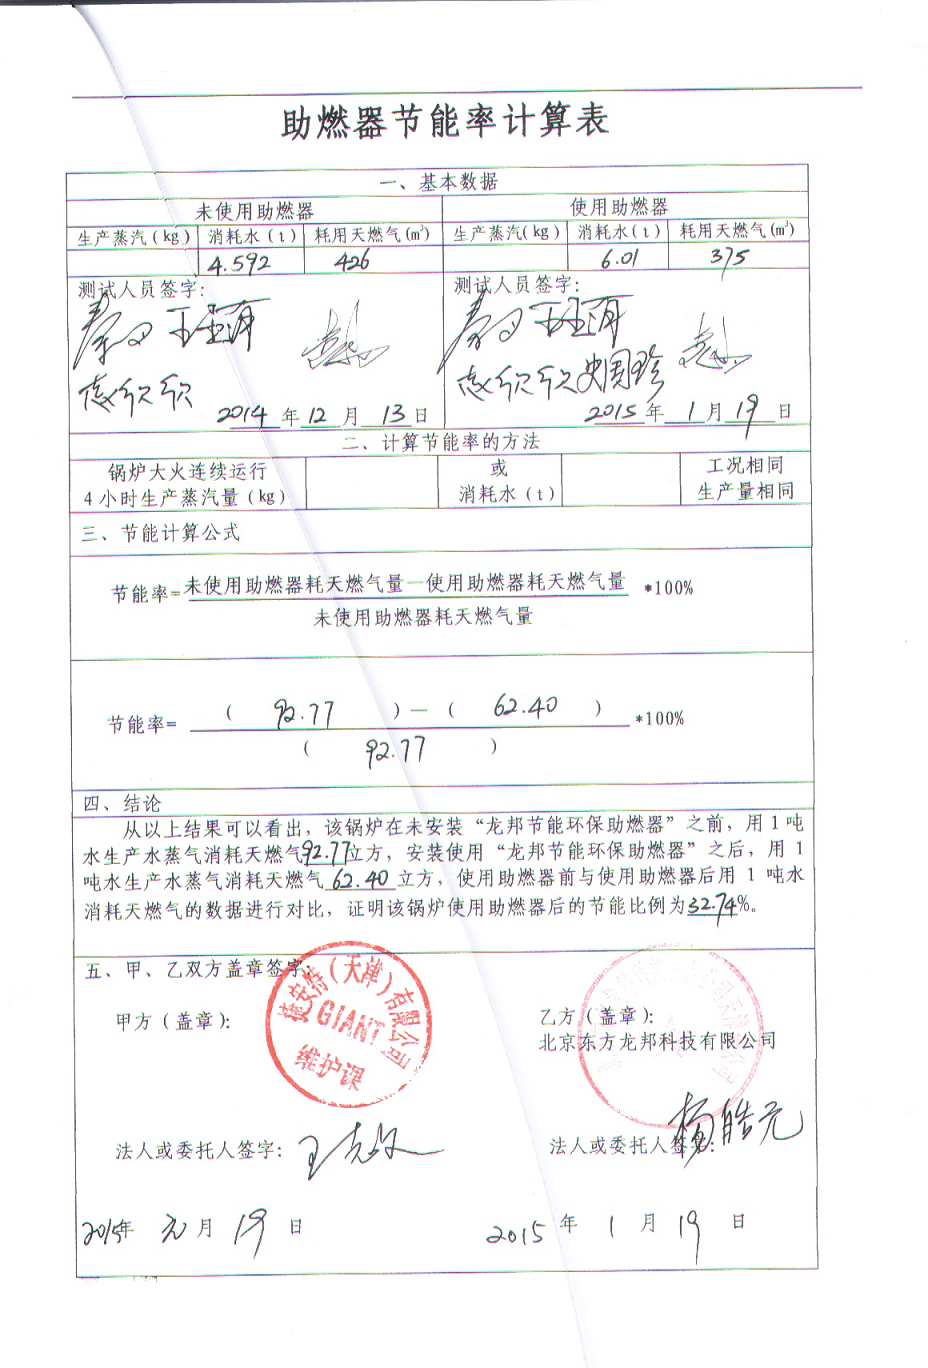 助燃器节能率计算表
一、基本数据
未使用助燃器 使用助燃器
生产蒸汽(kg) 消耗水(t) 耗用天燃气(m³) 生产蒸汽(kg) 消耗水(t) 耗用天燃气(m³)
4.592 426 6.01 375
测试人员签字: 测试人员签字:
2014 年 12 月 13 日 2015 年 1 月 19 日
二、计算节能率的方法
锅炉大火连续运行 或 工况相同
4小时生产蒸汽量(kg) 消耗水(t) 生产量相同
三、节能计算公式
未使用助燃器耗天燃气量—使用助燃器耗天燃气量
节能率= *100%
未使用助燃器耗天燃气量
( 92.77 )—( 62.40 )
节能率= *100%
( 92.77 )
四、结论
从以上结果可以看出，该锅炉在未安装“龙邦节能环保助燃器”之前，用1吨
水生产水蒸气消耗天燃气92.77立方，安装使用“龙邦节能环保助燃器”之后，用1
吨水生产水蒸气消耗天燃气 62.40 立方，使用助燃器前与使用助燃器后用1吨水
消耗天燃气的数据进行对比，证明该锅炉使用助燃器后的节能比例为32.74%。
五、甲、乙双方盖章签字:
捷安特(天津)有限公司
GIANT
维护课
甲方(盖章): 乙方(盖章):
北京东方龙邦科技有限公司
法人或委托人签字: 法人或委托人签字: 杨皓元
2015年 元月 19 日 2015 年 1 月 19 日